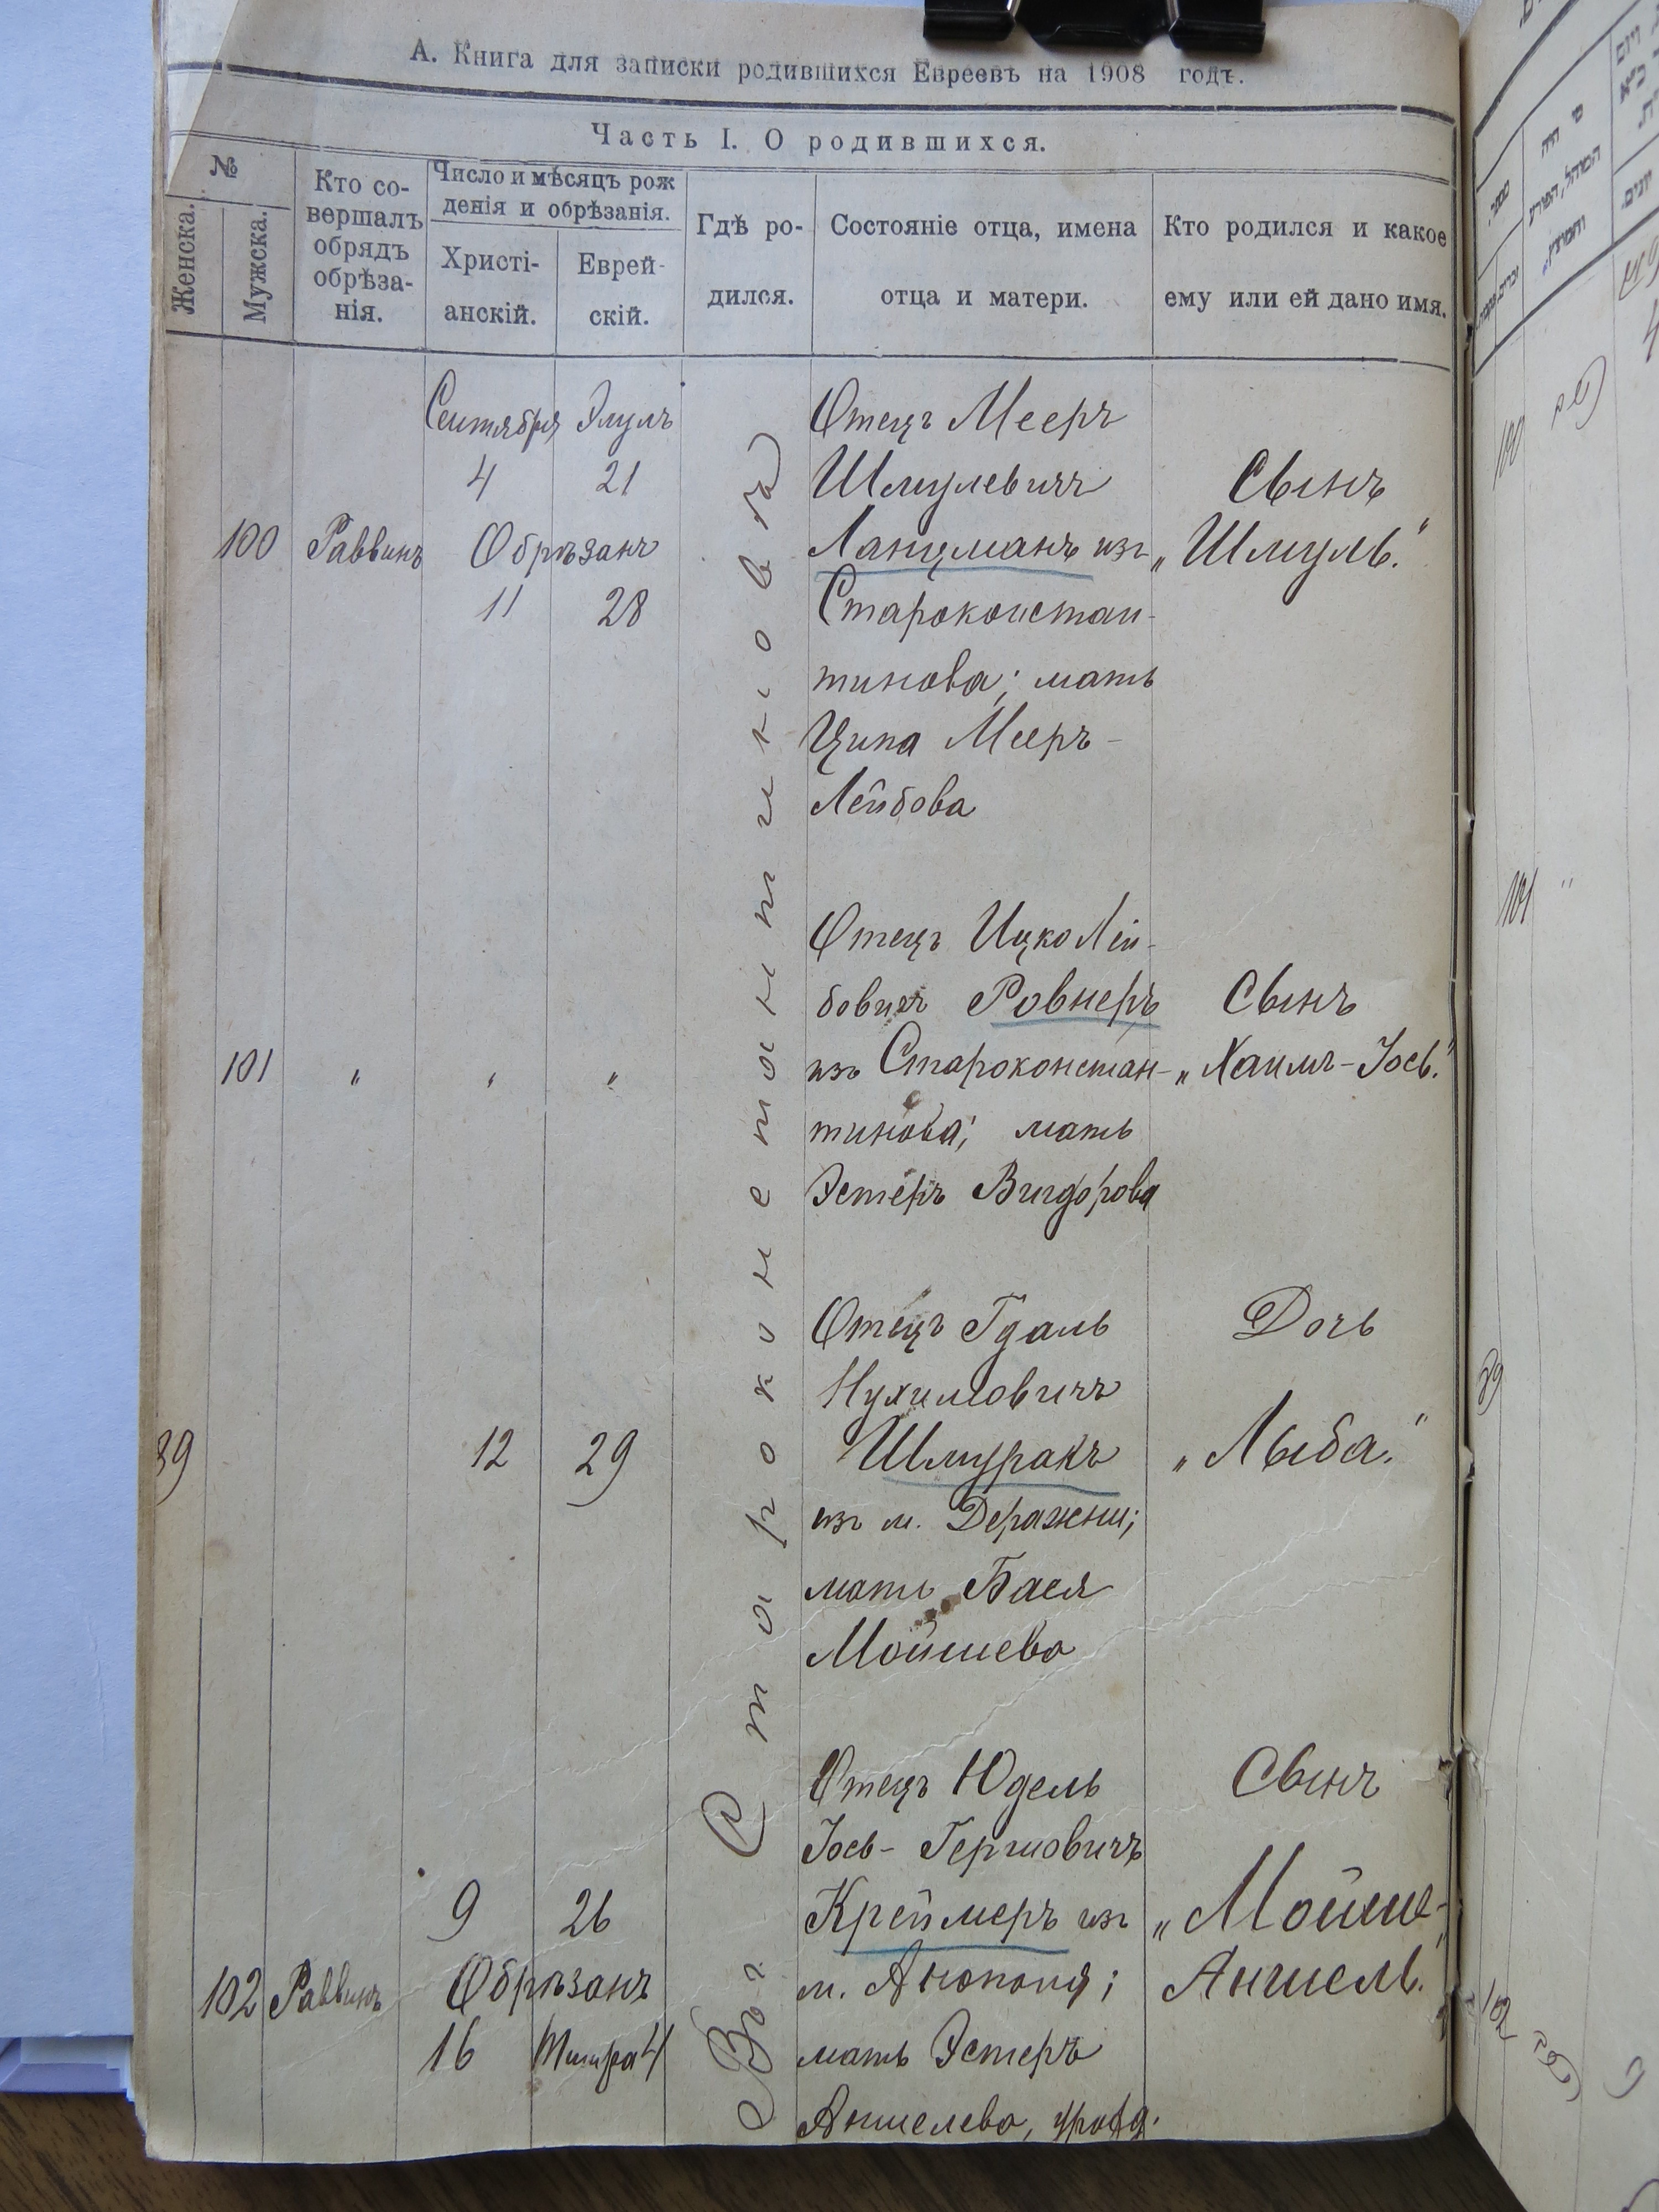 А. Книга для записки родившихся Евреевъ на 1908 годъ.
Часть I. О родившихся.
№
Женска.
Мужска.
Кто со-
вершалъ
обрядъ
обрѣза-
нія.
Число и мѣсяцъ рож
денія и обрѣзанія.
Христі-
анскій.
Еврей-
скій.
Гдѣ ро-
дился.
Состояніе отца, имена
отца и матери.
Кто родился и какое
ему или ей дано имя.
Въ г. Староконстантиновѣ
100
Раввинъ
Сентября Элулъ
4 21
Обрѣзанъ
11 28
Отецъ Мееръ
Шмулевичъ
Ланцманъ изъ
Староконстан-
тинова; мать
Ципа Мееръ-
Лейбова
Сынъ
„Шмуль."
101
" " "
Отецъ Ицко Лей-
бовичъ Ровнеръ
изъ Староконстан-
тинова; мать
Эстеръ Вигдорова
Сынъ
„Хаимъ-Іось."
39
12 29
Отецъ Гдаль
Нухимовичъ
Шмуракъ
изъ м. Деражни;
мать Бася
Мойшева
Дочь
„Лыба."
102
Раввинъ
9 26
Обрѣзанъ
16 Тишра 4
Отецъ Юдель
Іось-Гершовичъ
Креймеръ изъ
м. Анополя;
мать Эстеръ
Аншелева, урожд.
Сынъ
„Мойше-
Аншель."
100
101
39
102